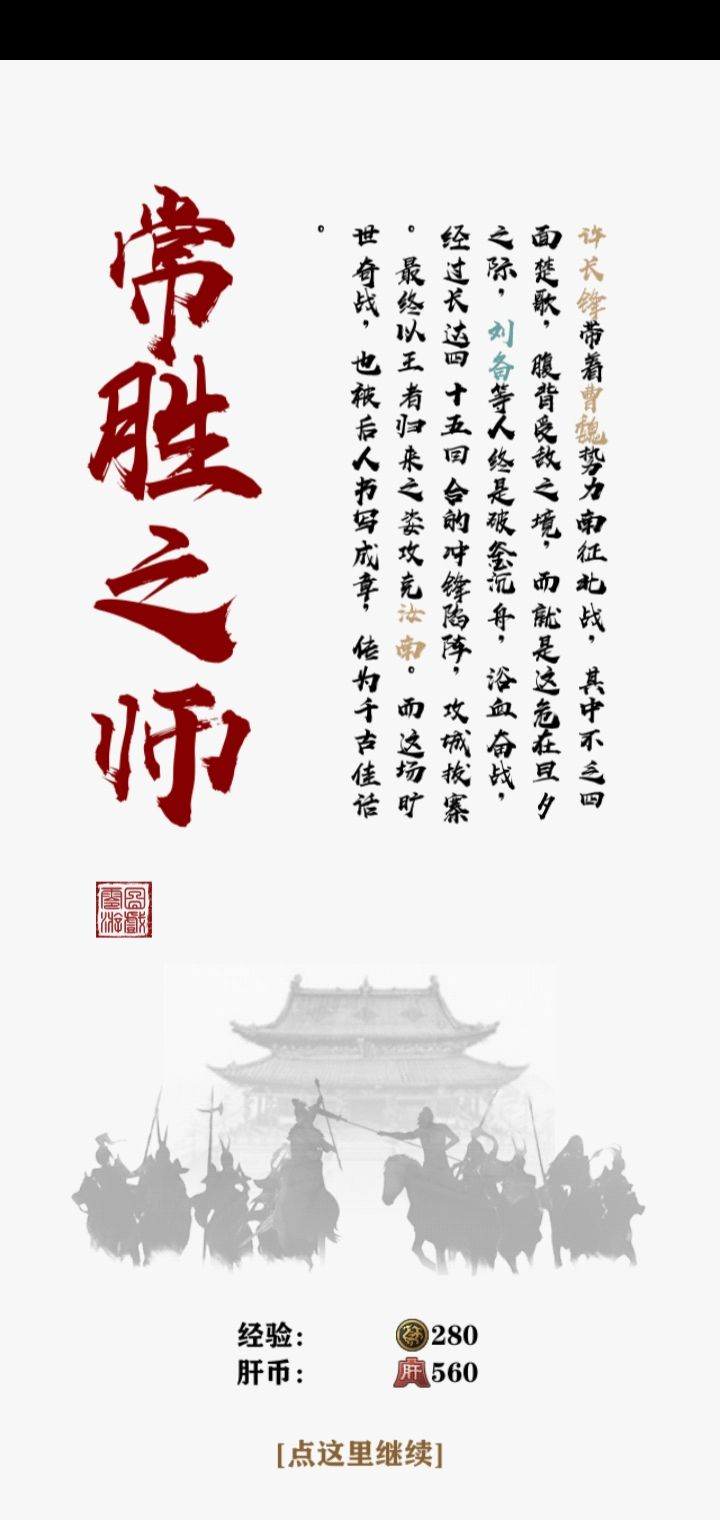 许长锋带着曹魏势力南征北战，其中不乏四
面楚歌，腹背受敌之境，而就是这危在旦夕
之际，刘备等人终是破釜沉舟，浴血奋战，
经过长达四十五回合的冲锋陷阵，攻城拔寨
。最终以王者归来之姿攻克汝南。而这场旷
世奇战，也被后人书写成章，传为千古佳话
。
常胜之师
经验：280
肝币：肝560
[点这里继续]